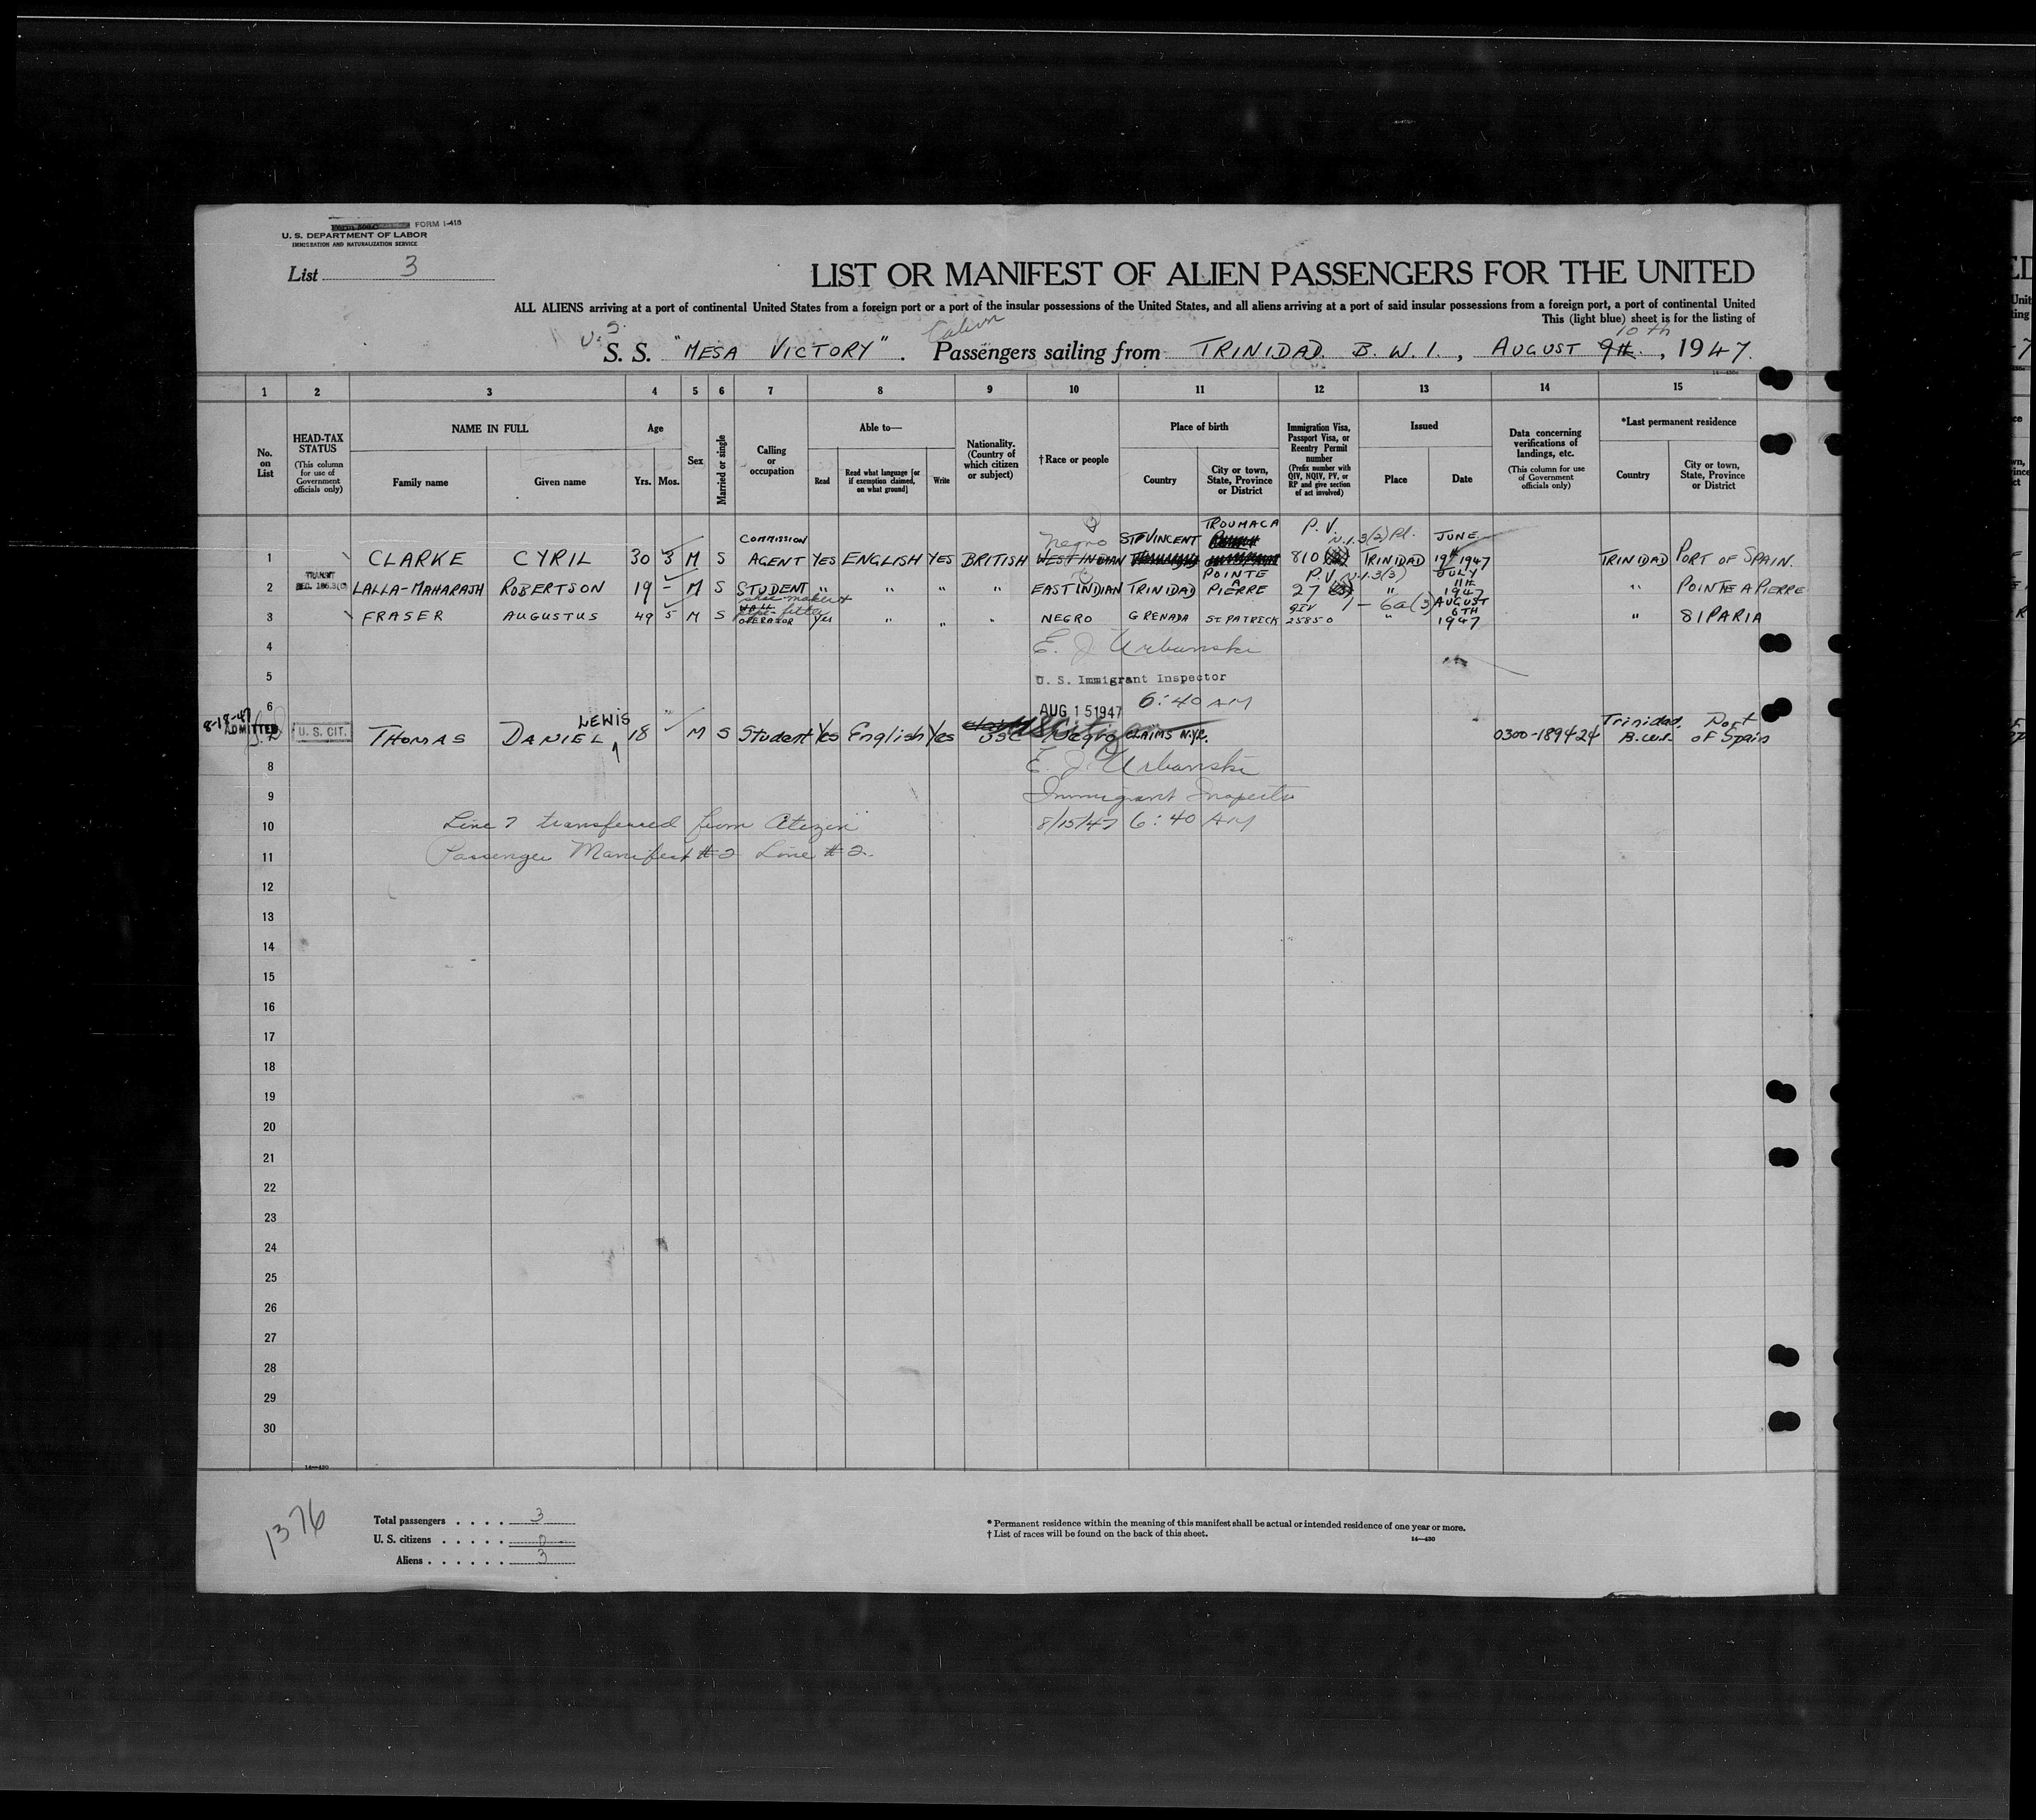 FORM I-415
U. S. DEPARTMENT OF LABOR
IMMIGRATION AND NATURALIZATION SERVICE
List 3
LIST OR MANIFEST OF ALIEN PASSENGERS FOR THE UNITED
ALL ALIENS arriving at a port of continental United States from a foreign port or a port of the insular possessions of the United States, and all aliens arriving at a port of said insular possessions from a foreign port, a port of continental United
This (light blue) sheet is for the listing of
10th
S. S. "MESA VICTORY". Passengers sailing from TRINIDAD. B. W. I., AUGUST 9th, 1947.
1 2 3 4 5 6 7 8 9 10 11 12 13 14 15
No. on List
HEAD-TAX STATUS
(This column for use of Government officials only)
NAME IN FULL
Family name Given name
Age
Yrs. Mos.
Sex
Married or single
Calling or occupation
Able to—
Read
Read what language [or if exemption claimed, on what ground]
Write
Nationality. (Country of which citizen or subject)
†Race or people
Place of birth
Country
City or town, State, Province or District
Immigration Visa, Passport Visa, or Reentry Permit number
(Prefix number with QIV, NQIV, PV, or RP and give section of act involved)
Issued
Place Date
Data concerning verifications of landings, etc.
(This column for use of Government officials only)
*Last permanent residence
Country
City or town, State, Province or District
COMMISSION Negro ST VINCENT TROUMACA P.V. JUNE
1 CLARKE CYRIL 30 3 M S AGENT YES ENGLISH YES BRITISH WEST INDIAN 810 TRINIDAD 19th 1947 TRINIDAD PORT OF SPAIN.
TRANSIT POINTE A P.V. JULY 11th
2 LALLA-MAHARAJH ROBERTSON 19 - M S STUDENT " " " " EAST INDIAN TRINIDAD PIERRE 27 " 1947 " POINTE A PIERRE
QIV 6a(3) AUGUST 6TH
3 FRASER AUGUSTUS 49 5 M S OPERATOR Yes " " " NEGRO GRENADA ST PATRICK 25850 " 1947 " SIPARIA
4 E. J. Urbanski
5 U. S. Immigrant Inspector
6 AUG 15 1947 6:40 AM
8-18-47
ADMITTED U. S. CIT. THOMAS DANIEL LEWIS 18 M S Student Yes English Yes USC Negro CLAIMS N.Y.C. 0300-189424 Trinidad, B.W.I. Port of Spain
8 E. J. Urbanski
9 Immigrant Inspector
10 Line 7 transferred from Citizen 8/15/47 6:40 AM
11 Passenger Manifest #2 Line #2.
12
13
14
15
16
17
18
19
20
21
22
23
24
25
26
27
28
29
30
14—430
1376
Total passengers . . . . 3
U. S. citizens . . . . . 0
Aliens . . . . . . 3
* Permanent residence within the meaning of this manifest shall be actual or intended residence of one year or more.
† List of races will be found on the back of this sheet.
14—430